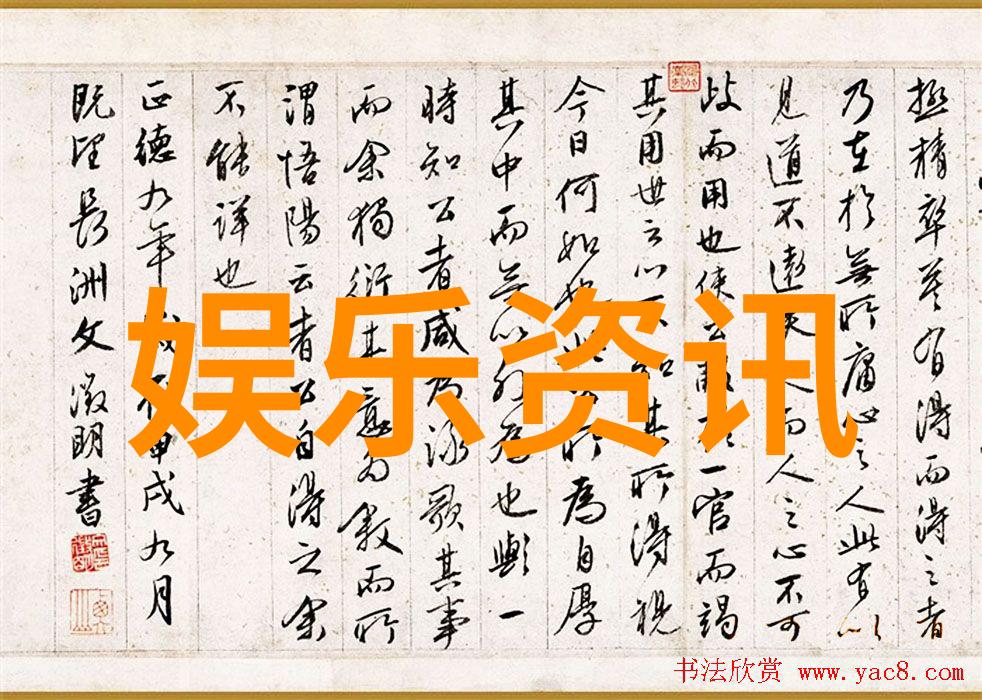 極精卒莫有得而得之者
乃在於無所庸心之人此有以
見道不遠夫人而人之心不可
歧而用也使公一官而竭
其用世之心不知其所得視
今日何如此所為自厚
其中而無以也歟一
時知公者咸為詠歌其事
而余獨衍其意為敘而所
謂悟陽云者公自得之余
不能詳也
正德九年甲戌九月
既望長洲文徵明書
娱乐资讯
书法欣赏 www.yac8.com